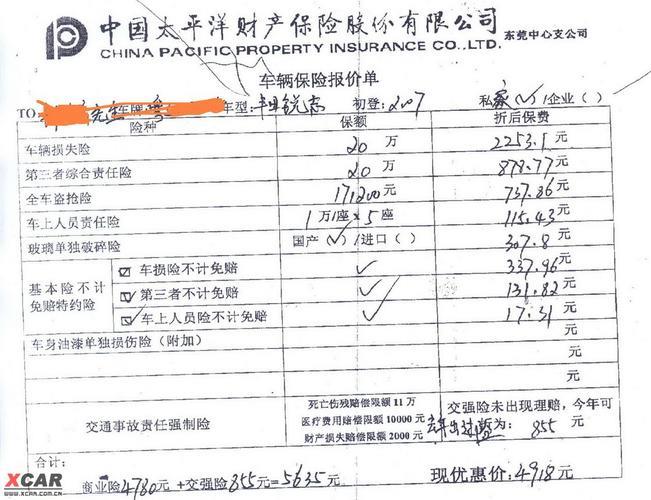 中国太平洋财产保险股份有限公司 东莞中心支公司
CHINA PACIFIC PROPERTY INSURANCE CO.,LTD.
车辆保险报价单
TO 先生 车牌 车型: 丰田锐志 初登: 2007 私家(✓)/企业( )
险种 保额 折后保费
车辆损失险 20 万 2253.1 元
第三者综合责任险 20 万 878.77 元
全车盗抢险 171200 元 737.86 元
车上人员责任险 1 万/座 × 5 座 115.43 元
玻璃单独破碎险 国产(✓)/进口( ) 307.8 元
基本险不计免赔特约险 ☑ 车损险不计免赔 ✓ 337.96 元
☑ 第三者不计免赔 ✓ 131.82 元
☑ 车上人员险不计免赔 ✓ 17.31 元
车身油漆单独损伤险(附加) 元
元
交通事故责任强制险 死亡伤残赔偿限额 11 万
医疗费用赔偿限额 10000 元
财产损失赔偿限额 2000 元
交强险未出现理赔,今年可
为: 855 元
合计:
商业险 4780 元 +交强险 855 元= 5635 元 现优惠价: 4918 元
XCAR
WWW.XCAR.COM.CN